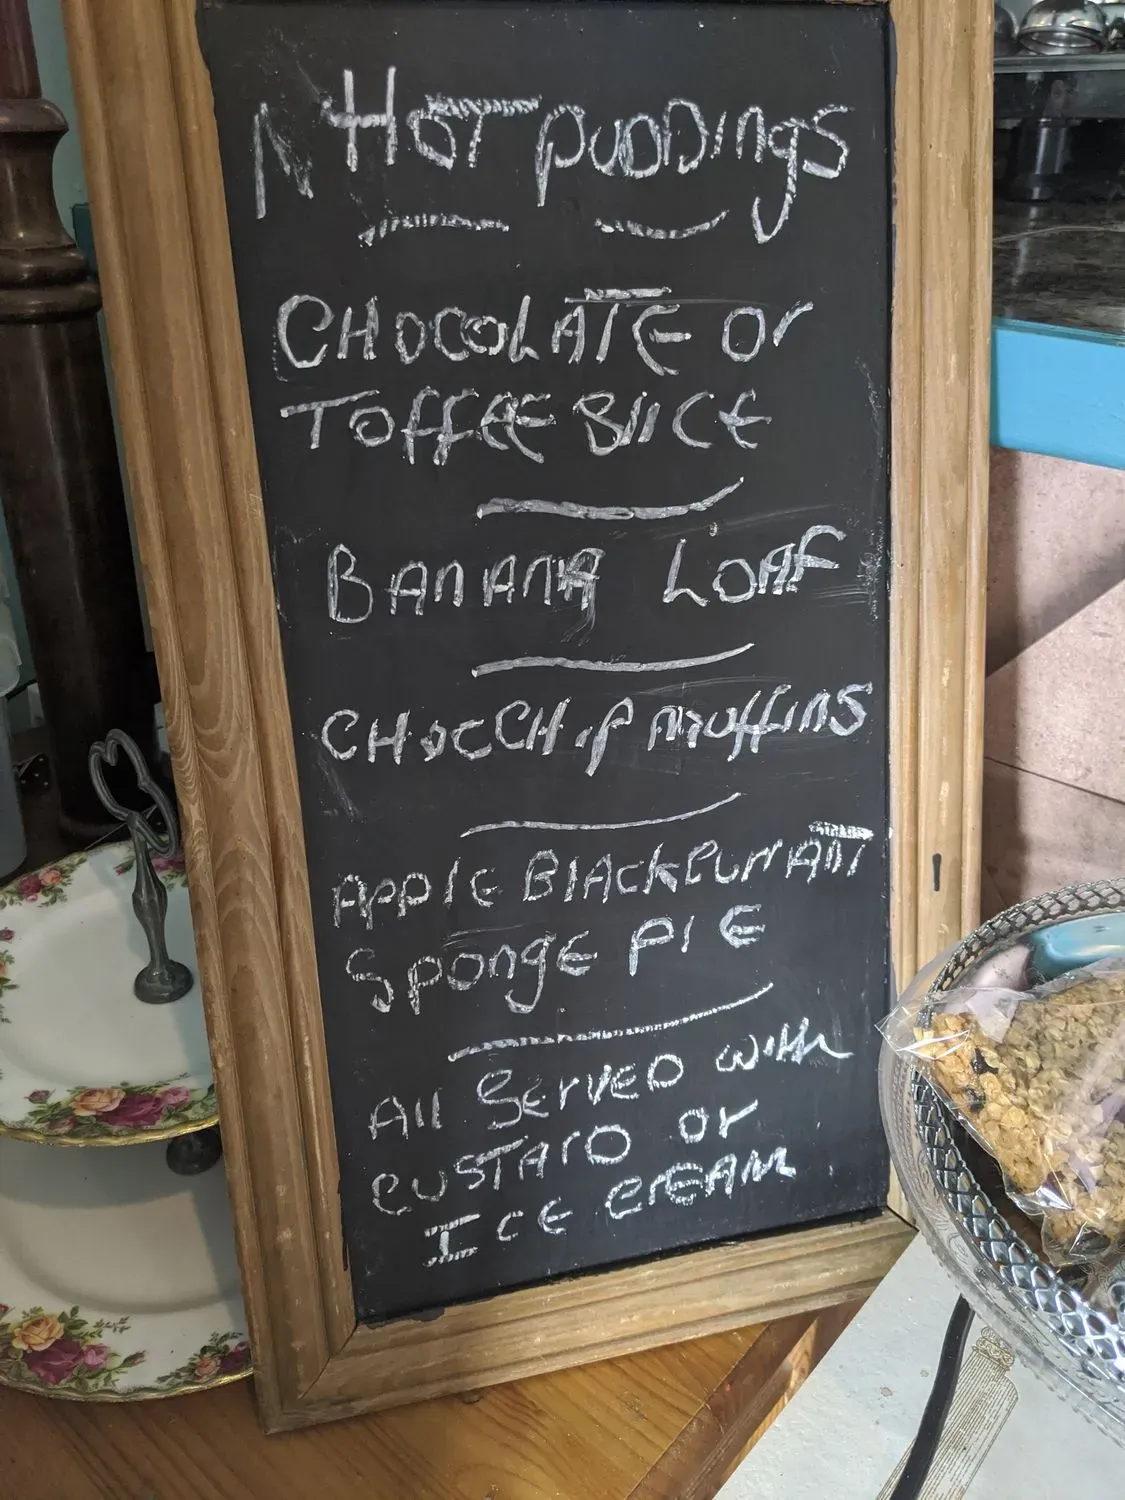 Hot puddings
CHOCOLATE Or
TOffEE BlICE
BANANA LOAF
CHOC CHip muffins
APPlE BlACkCurrANT
Sponge PIE
All SErvED with
CUSTArD or
ICE CrEAm